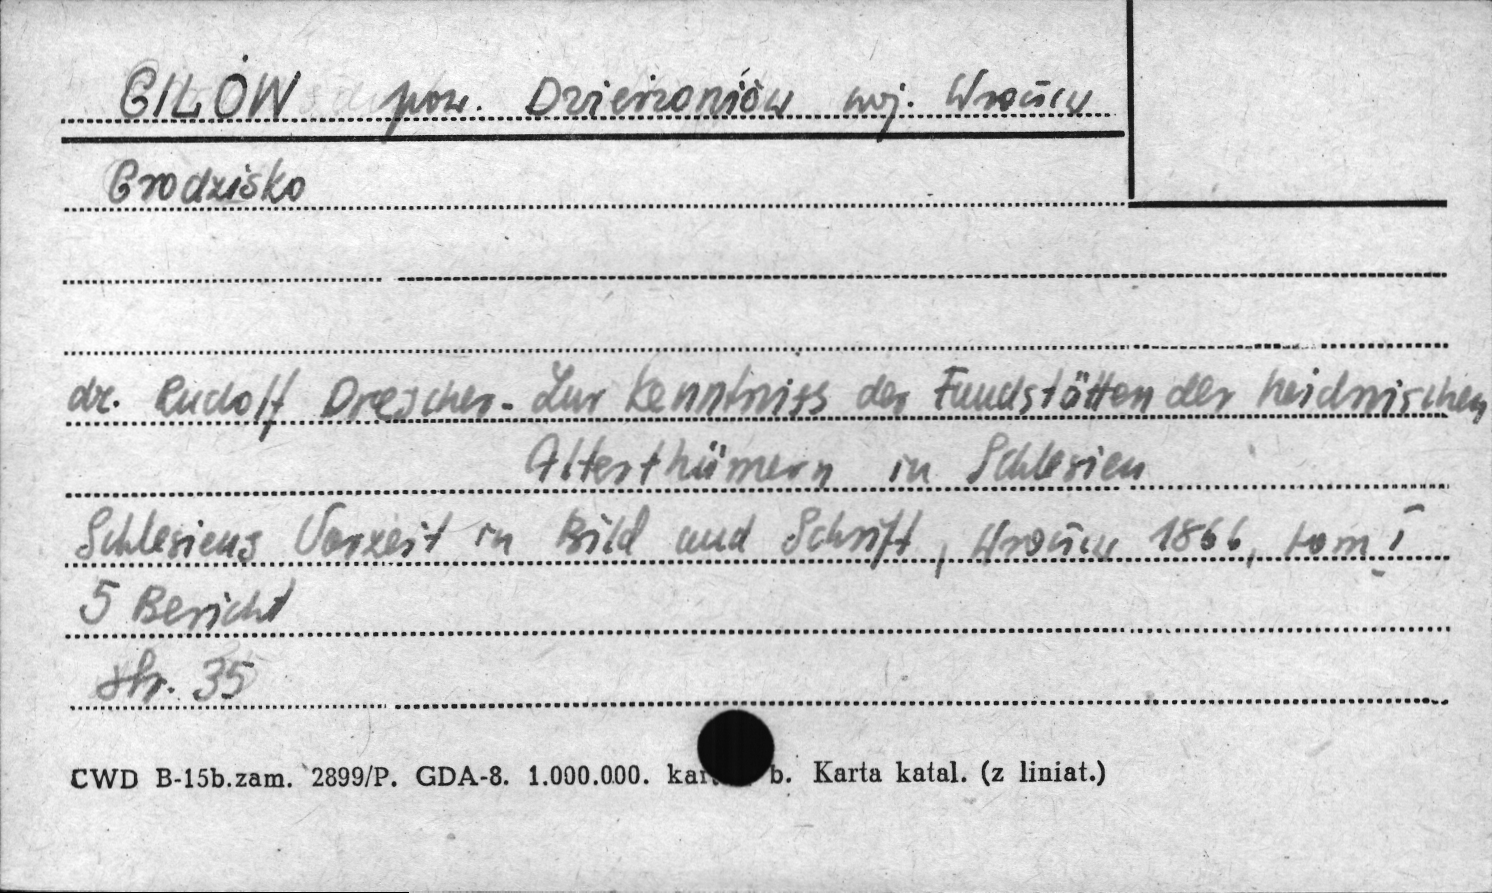 GILÓW pow. Dzierżoniów woj. Wrocław
Grodzisko
dr. Rudolf Drescher - Zur Kenntniss der Fundstätten der heidnischen
Alterthümern in Schlesien
Schlesiens Vorzeit in Bild und Schrift, Wrocław 1866, tom I
5 Bericht
str. 35
CWD B-15b.zam. 2899/P. GDA-8. 1.000.000. b. Karta katal. (z liniat.)